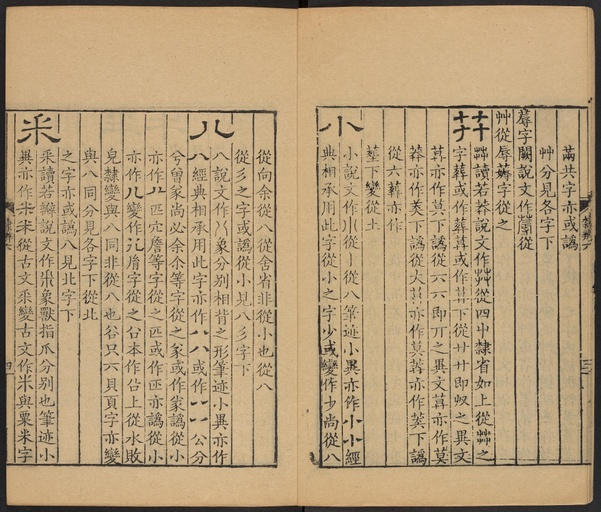 㒼共字亦或譌
艸分見各字下
蓐字闕說文作蓐從
艸從辱薅字從之
茻讀若莽說文作茻從四屮隸省如上從艸之
字葬或作葬葬或作葬下從廾廾即収之異文
莫亦作莫下譌從六六即丌之異文莫亦作莫
莽亦作莽下譌從大莫亦作莫莫亦作葬下譌
從六葬亦作
塟下變從土
小
小說文作小從丨從八筆迹小異亦作小小經
典相承用此字從小之字少或變作少尚從八
從向余從八從舍省非從小也從八
從彡之字或譌從小見八彡字下
八
八說文作八象分別相背之形筆迹小異亦作
八經典相承用此字亦作八八或作 公分
兮曾家尚必余尒等字從之㒸或作蒙譌從小
亦作 匹穴詹等字從之匹或作匹亦譌從小
亦作儿變作 㕣字從之㕣本作㕣上從水敗
皃隸變與八同非從八也谷只六貝頁字亦變
與八同分見各字下從北
之字亦或譌八見北字下
釆
釆讀若辨說文作釆象獸指爪分別也筆迹小
異亦作米采從古文釆變古文作米與粟米字
隸辨六